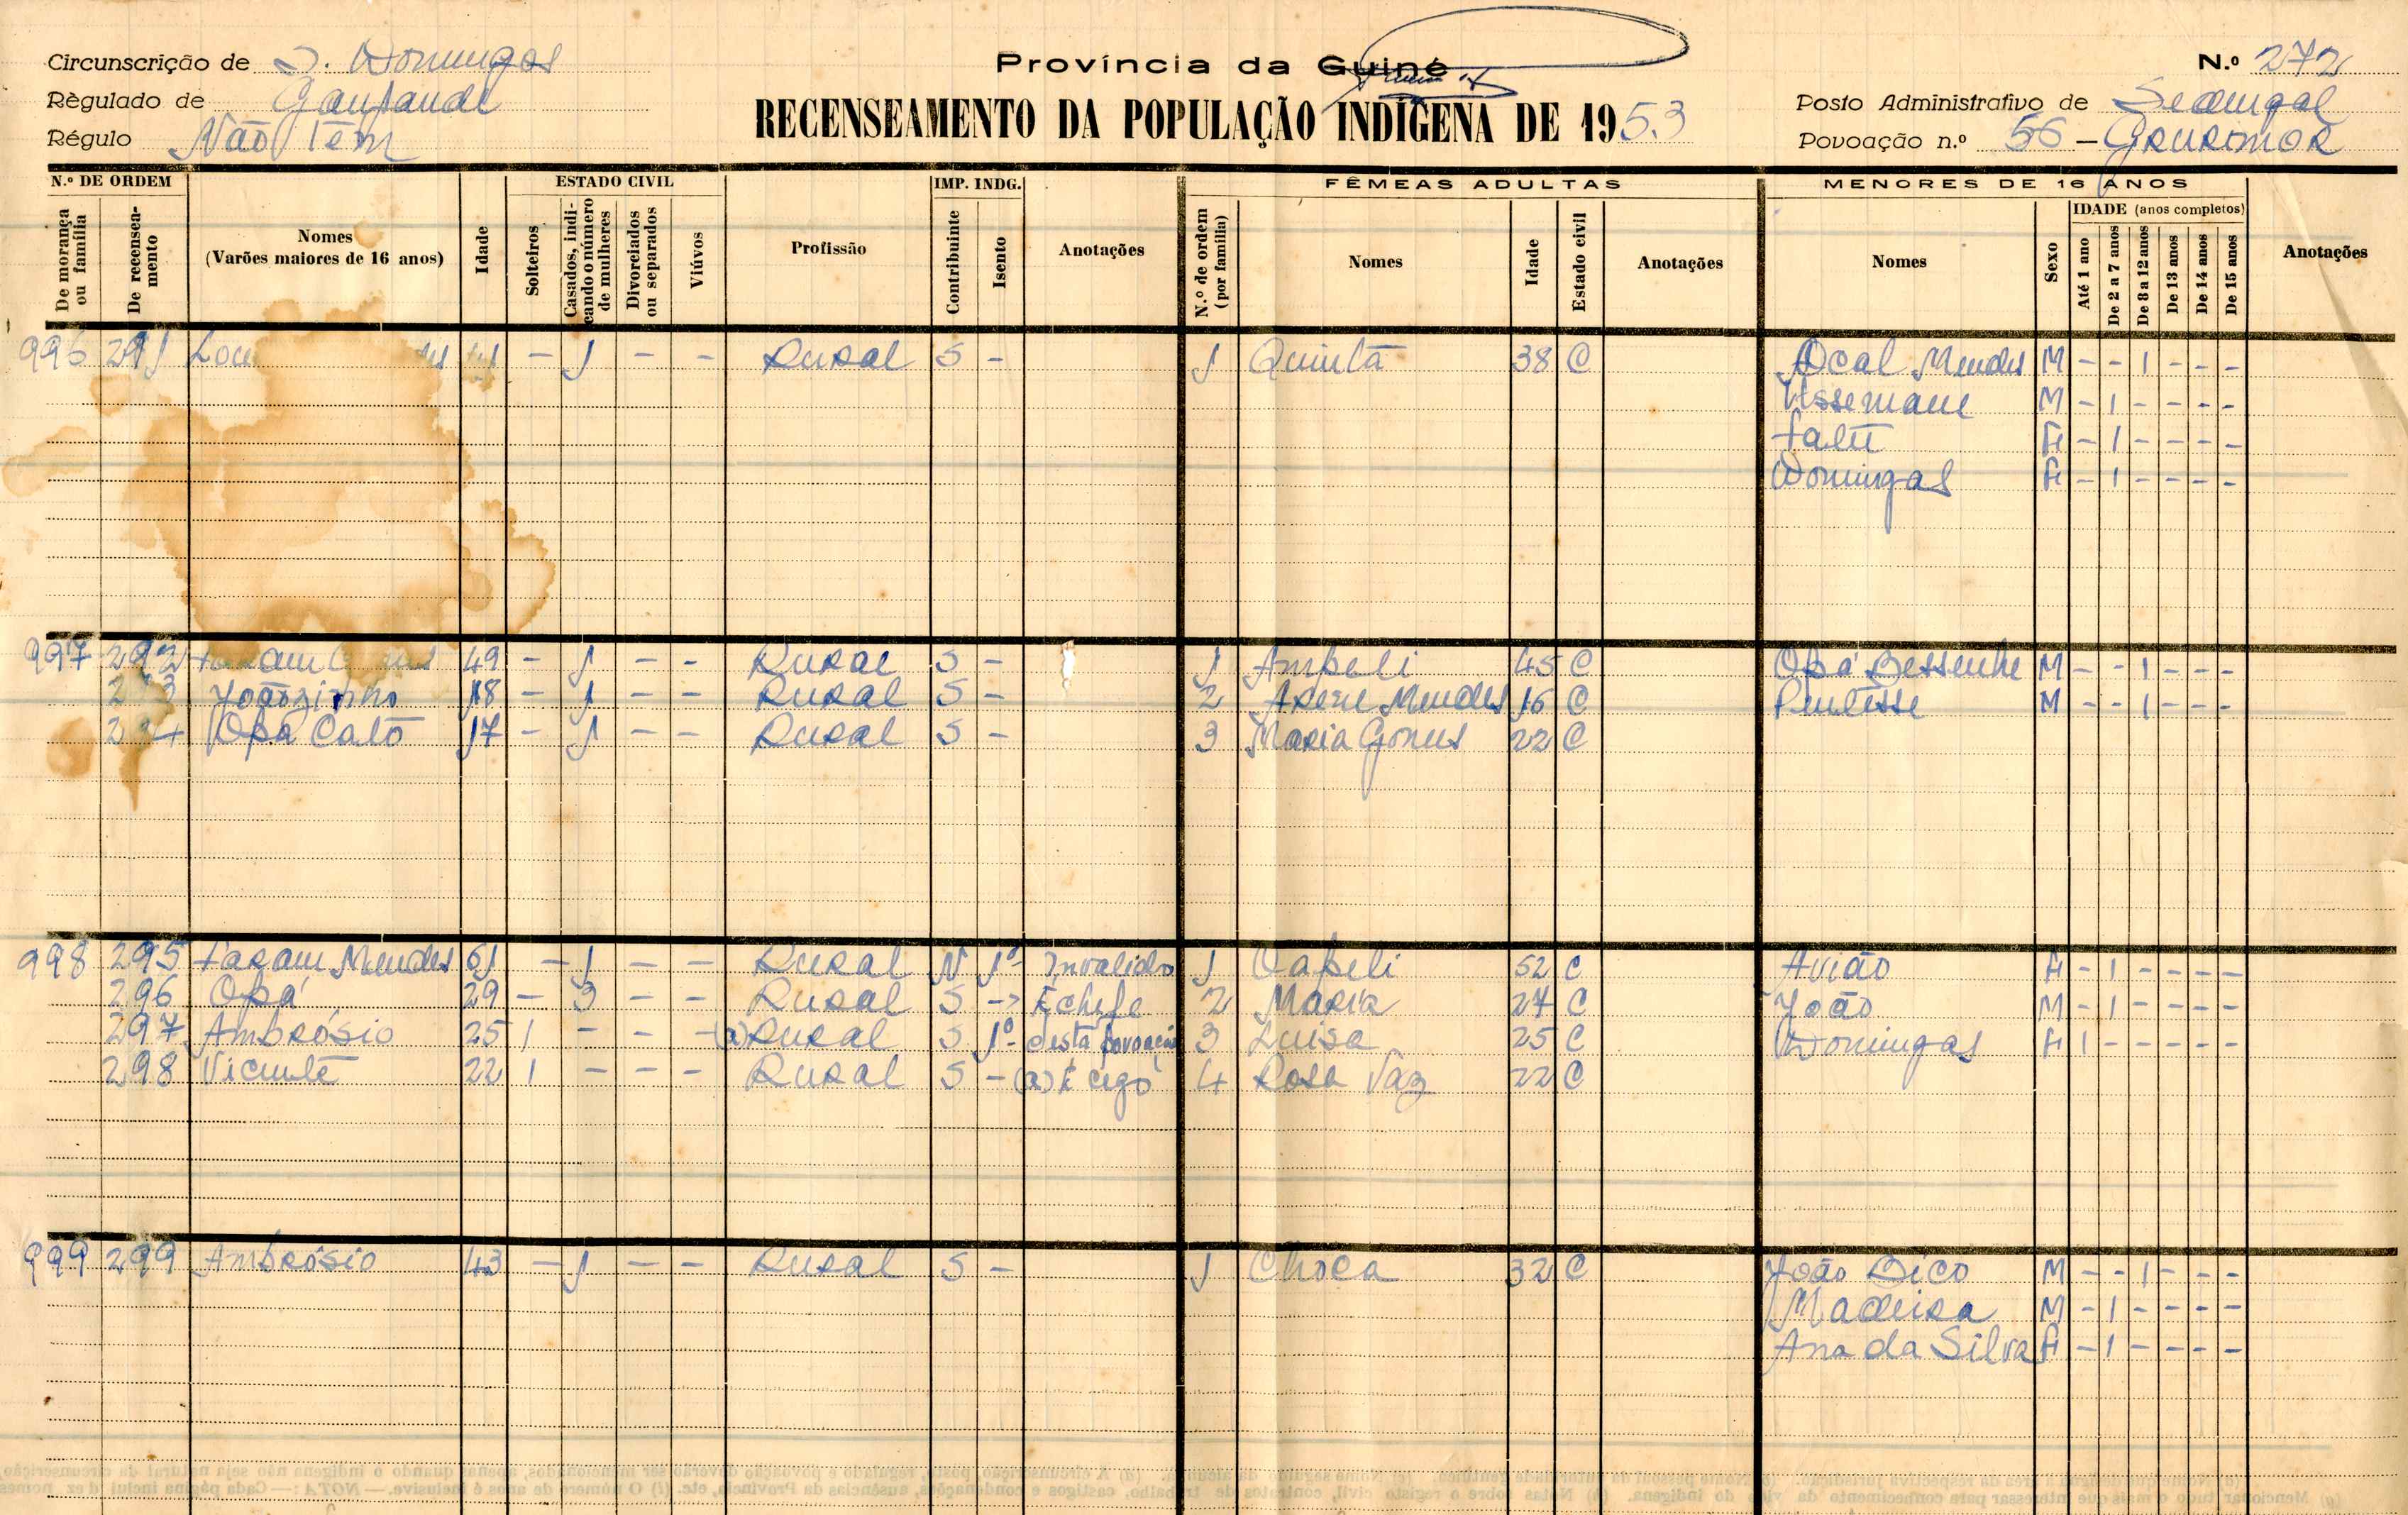 Circunscrição de S. Domingos
Règulado de
Régulo Não Tem
Província da Guiné
RECENSEAMENTO DA POPULAÇÃO INDÍGENA DE 1953
N.º 272
Posto Administrativo de Sedengal
Povoação n.º 56 - GRUROMOR
N.º DE ORDEM
De morança ou família
De recenseamento
Nomes
(Varões maiores de 16 anos)
Idade
ESTADO CIVIL
Solteiros
Casados, indicando o número de mulheres
Divorciados ou separados
Viúvos
Profissão
IMP. INDG.
Contribuinte
Isento
Anotações
FÊMEAS ADULTAS
N.º de ordem (por família)
Nomes
Idade
Estado civil
Anotações
MENORES DE 16 ANOS
Nomes
Sexo
IDADE (anos completos)
Até 1 ano
De 2 a 7 anos
De 8 a 12 anos
De 13 anos
De 14 anos
De 15 anos
Anotações
996 291 - 1 - - Rural S - 1 Quinta 38 C Ocal Mendes M - - 1 - - -
Ussemane M - 1 - - - -
Fatu F - 1 - - - -
Domingas F - 1 - - - -
997 292 49 - 1 - - Rural S - 1 Ampeli 45 C Opá Bessenhe M - - 1 - - -
293 Joãozinho 18 - 1 - - Rural S - 2 Mendes 16 C Pentesse M - - 1 - - -
294 Opá Cató 17 - 1 - - Rural S - 3 Maria Gomes 22 C
998 295 Faram Mendes 61 - 1 - - Rural N 1º- Invalido 1 Oapeli 52 C Avião F - 1 - - - -
296 Opá 29 - 3 - - Rural S -> É chefe 2 Maria 27 C João M - 1 - - - -
297 Ambrósio 25 1 - - - (a) Rural S 1º- desta povoação 3 Luisa 25 C Domingas F 1 - - - - -
298 Vicente 22 1 - - - Rural S - (a) É cego 4 Rosa Vaz 22 C
999 299 Ambrósio 43 - 1 - - Rural S - 1 Choca 32 C João Bico M - - 1 - - -
Madeira M - 1 - - - -
Ana da Silva F - 1 - - - -